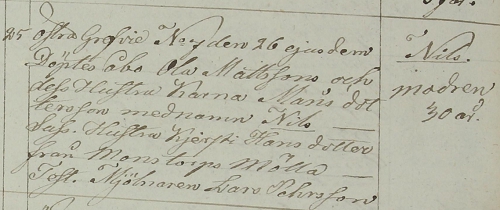 25 Östra Grefvie No 7 den 26 ejusdem
Döptes åbo Ola Måttssons och
dess Hustru Karna Måns dot
ters son med namn Nils
Sus. Hustru Kjersti Hans dotter
från Monstorps Mölla
Test. Mjölnaren Lars Pehrsson
Nils.
modren
30 år.